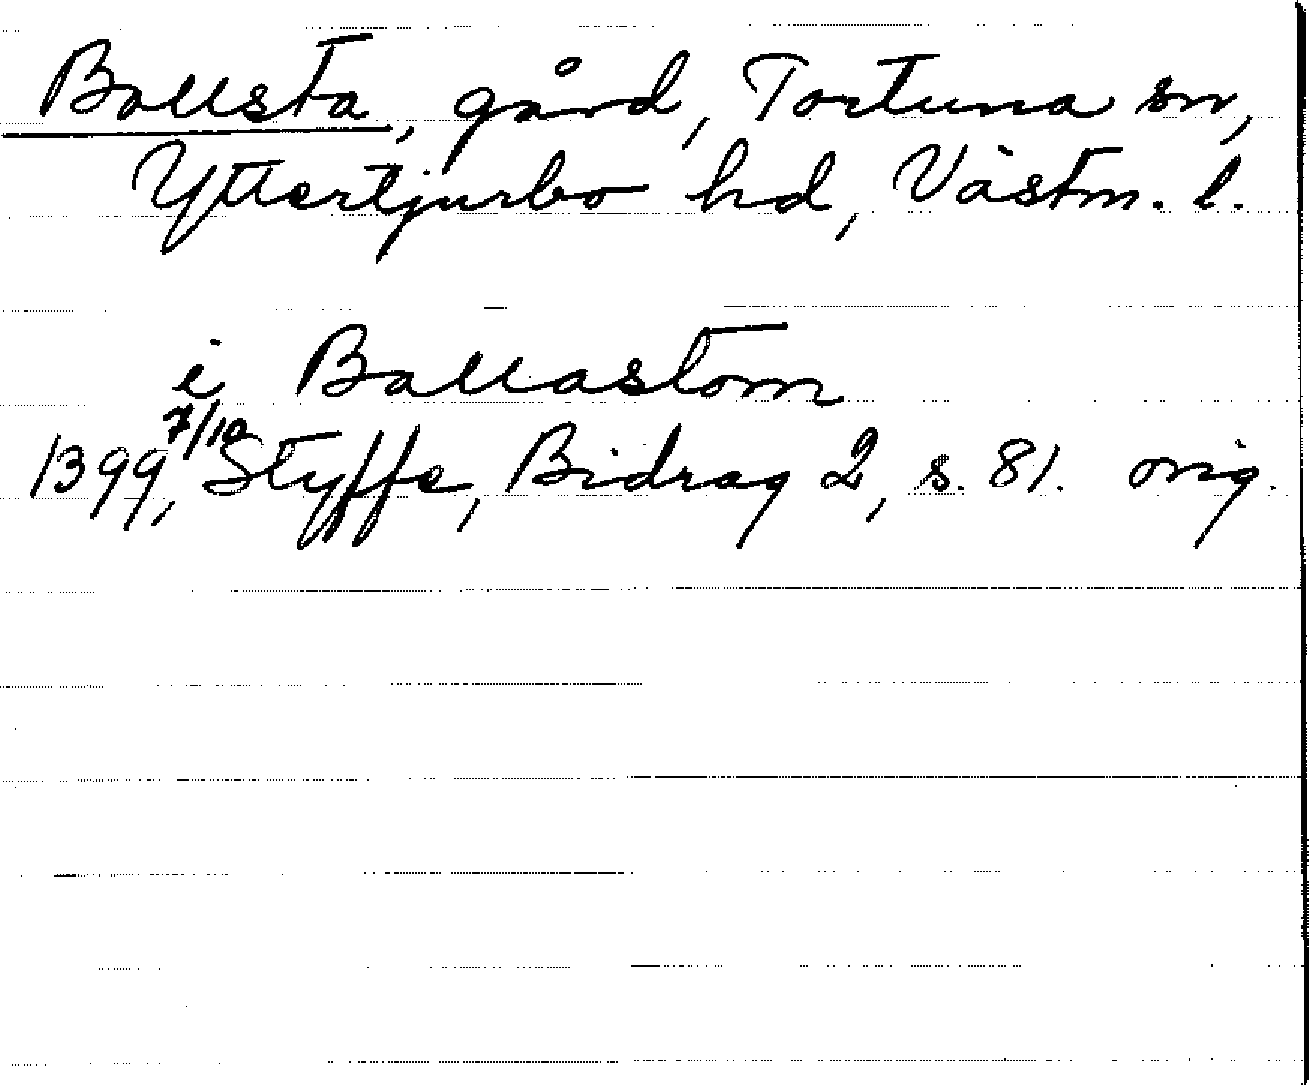 Ballsta, gård, Tortuna sn,
Yttertjurbo hd, Västm. l.
i Ballastom
1399 7/10, Styffe, Bidrag 2, s. 81. orig.